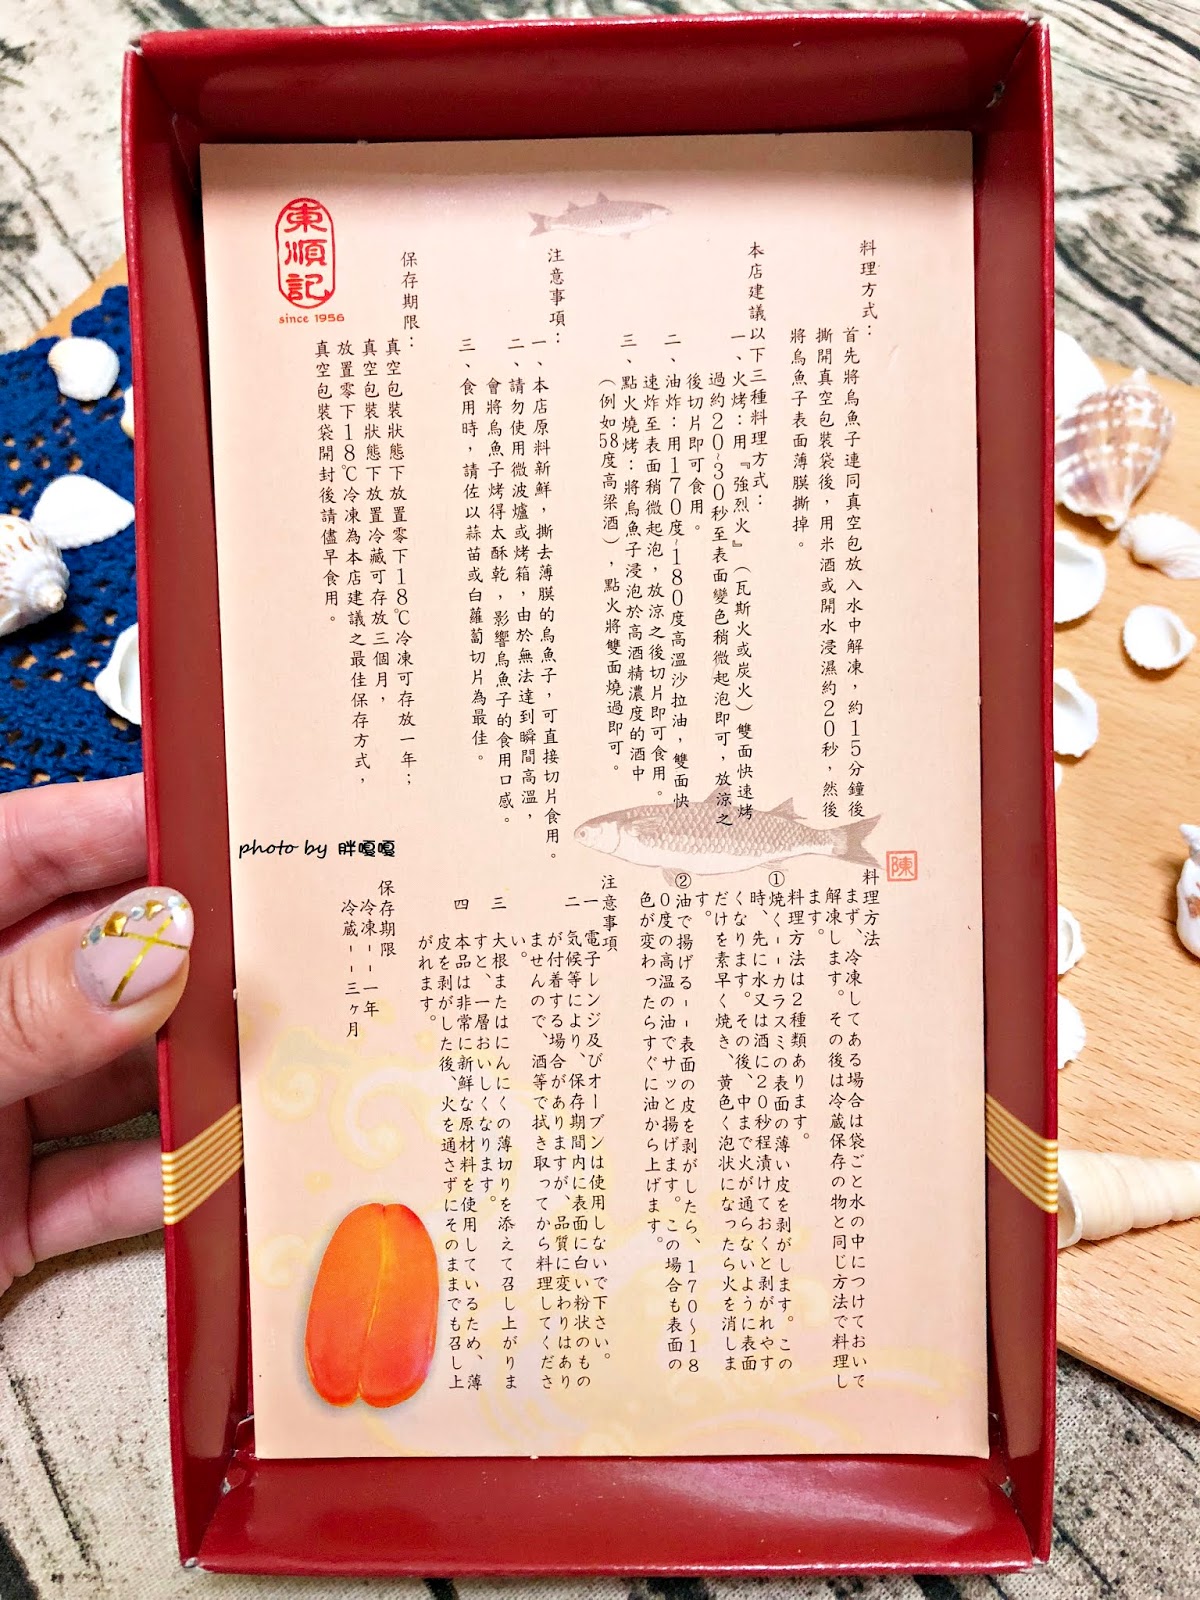 料理方式：
首先將烏魚子連同真空包放入水中解凍，約15分鐘後
撕開真空包裝袋後，用米酒或開水浸濕約20秒，然後
將烏魚子表面薄膜撕掉。
本店建議以下三種料理方式：
一、火烤：用『強烈火』（瓦斯火或炭火）雙面快速烤
過約20~30秒至表面變色稍微起泡即可，放涼之
後切片即可食用。
二、油炸：用170度~180度高溫沙拉油，雙面快
速炸至表面稍微起泡，放涼之後切片即可食用。
三、點火燒烤：將烏魚子浸泡於高酒精濃度的酒中
（例如58度高梁酒），點火將雙面燒過即可。
注意事項：
一、本店原料新鮮，撕去薄膜的烏魚子，可直接切片食用。
二、請勿使用微波爐或烤箱，由於無法達到瞬間高溫，
會將烏魚子烤得太酥乾，影響烏魚子的食用口感。
三、食用時，請佐以蒜苗或白蘿蔔切片為最佳。
保存期限：
真空包裝狀態下放置零下18℃冷凍可存放一年；
真空包裝狀態下放置冷藏可存放三個月，
放置零下18℃冷凍為本店建議之最佳保存方式，
真空包裝袋開封後請儘早食用。
東順記
since 1956
陳
料理方法
まず、冷凍してある場合は袋ごと水の中につけておいて
解凍します。その後は冷蔵保存の物と同じ方法で料理し
ます。
料理方法は2種類あります。
①焼く－－カラスミの表面の薄い皮を剥がします。この
時、先に水又は酒に20秒程漬けておくと剥がれやす
くなります。その後、中まで火が通らないように表面
だけを素早く焼き、黄色く泡状になったら火を消しま
す。
②油で揚げる－－表面の皮を剥がしたら、170～18
0度の高温の油でサッと揚げます。この場合も表面の
色が変わったらすぐに油から上げます。
注意事項
一 電子レンジ及びオーブンは使用しないで下さい。
二 気候等により、保存期間内に表面に白い粉状のもの
が付着する場合がありますが、品質に変わりはあり
ませんので、酒等で拭き取ってから料理してくださ
い。
三 大根またはにんにくの薄切りを添えて召し上がりま
すと、一層おいしくなります。
四 本品は非常に新鮮な原材料を使用しているため、薄
皮を剥がした後、火を通さずにそのままでも召し上
がれます。
保存期限
冷凍－－一年
冷蔵－－三ヶ月
photo by 胖嘎嘎